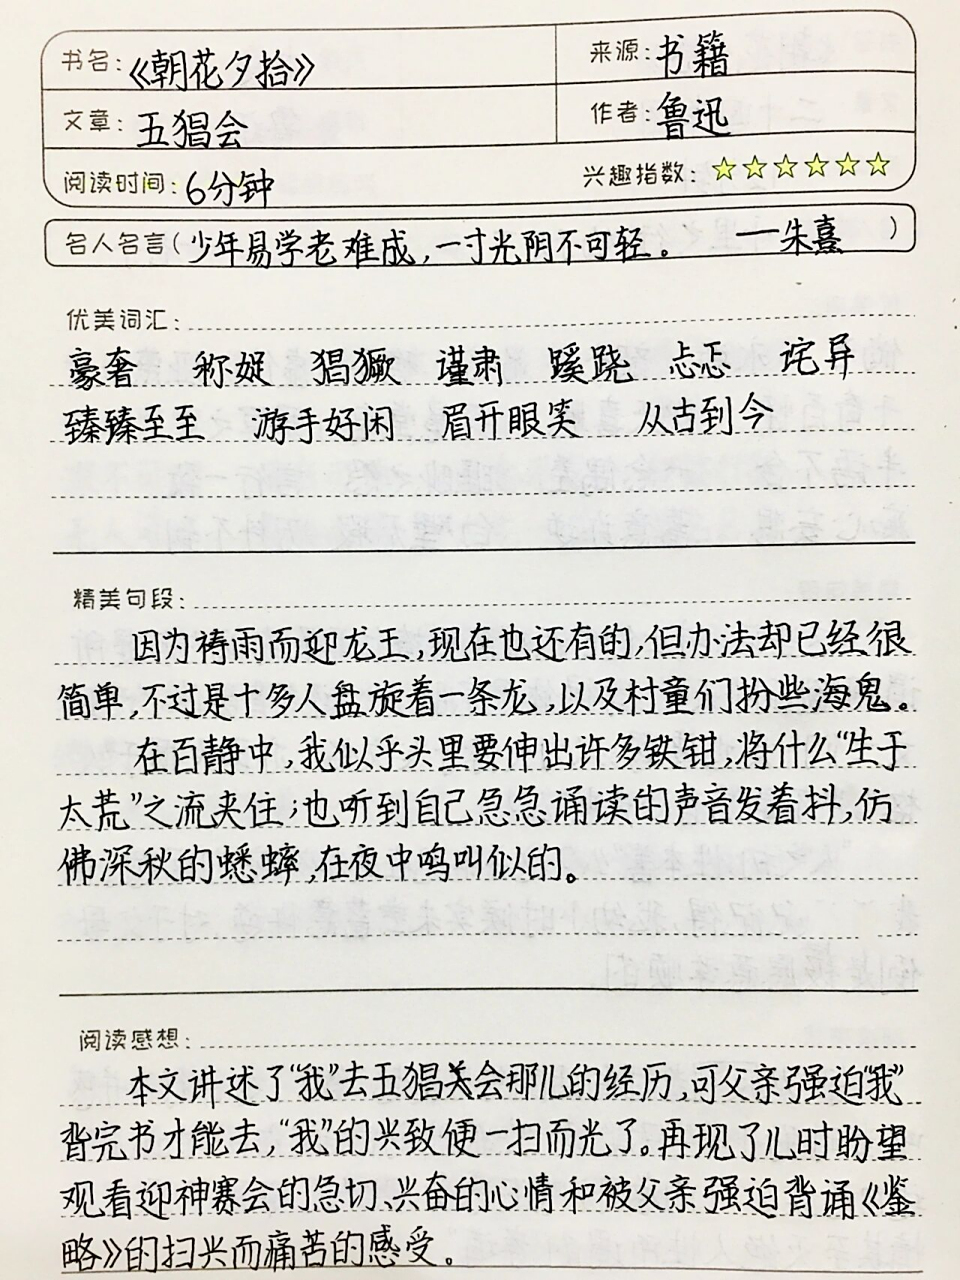 书名:《朝花夕拾》 来源:书籍
文章:五猖会 作者:鲁迅
阅读时间:6分钟 兴趣指数:☆☆☆☆☆☆
名人名言(少年易学老难成,一寸光阴不可轻。 ——朱熹 )
优美词汇:
豪奢 称娖 猖獗 谨肃 蹊跷 忐忑 诧异
臻臻至至 游手好闲 眉开眼笑 从古到今
精美句段:
因为祷雨而迎龙王,现在也还有的,但办法却已经很
简单,不过是十多人盘旋着一条龙,以及村童们扮些海鬼。
在百静中,我似乎头里要伸出许多铁钳,将什么“生于
太荒”之流夹住;也听到自己急急诵读的声音发着抖,仿
佛深秋的蟋蟀,在夜中鸣叫似的。
阅读感想:
本文讲述了“我”去五猖会那儿的经历,可父亲强迫“我”
背完书才能去,“我”的兴致便一扫而光了。再现了儿时盼望
观看迎神赛会的急切、兴奋的心情和被父亲强迫背诵《鉴
略》的扫兴而痛苦的感受。